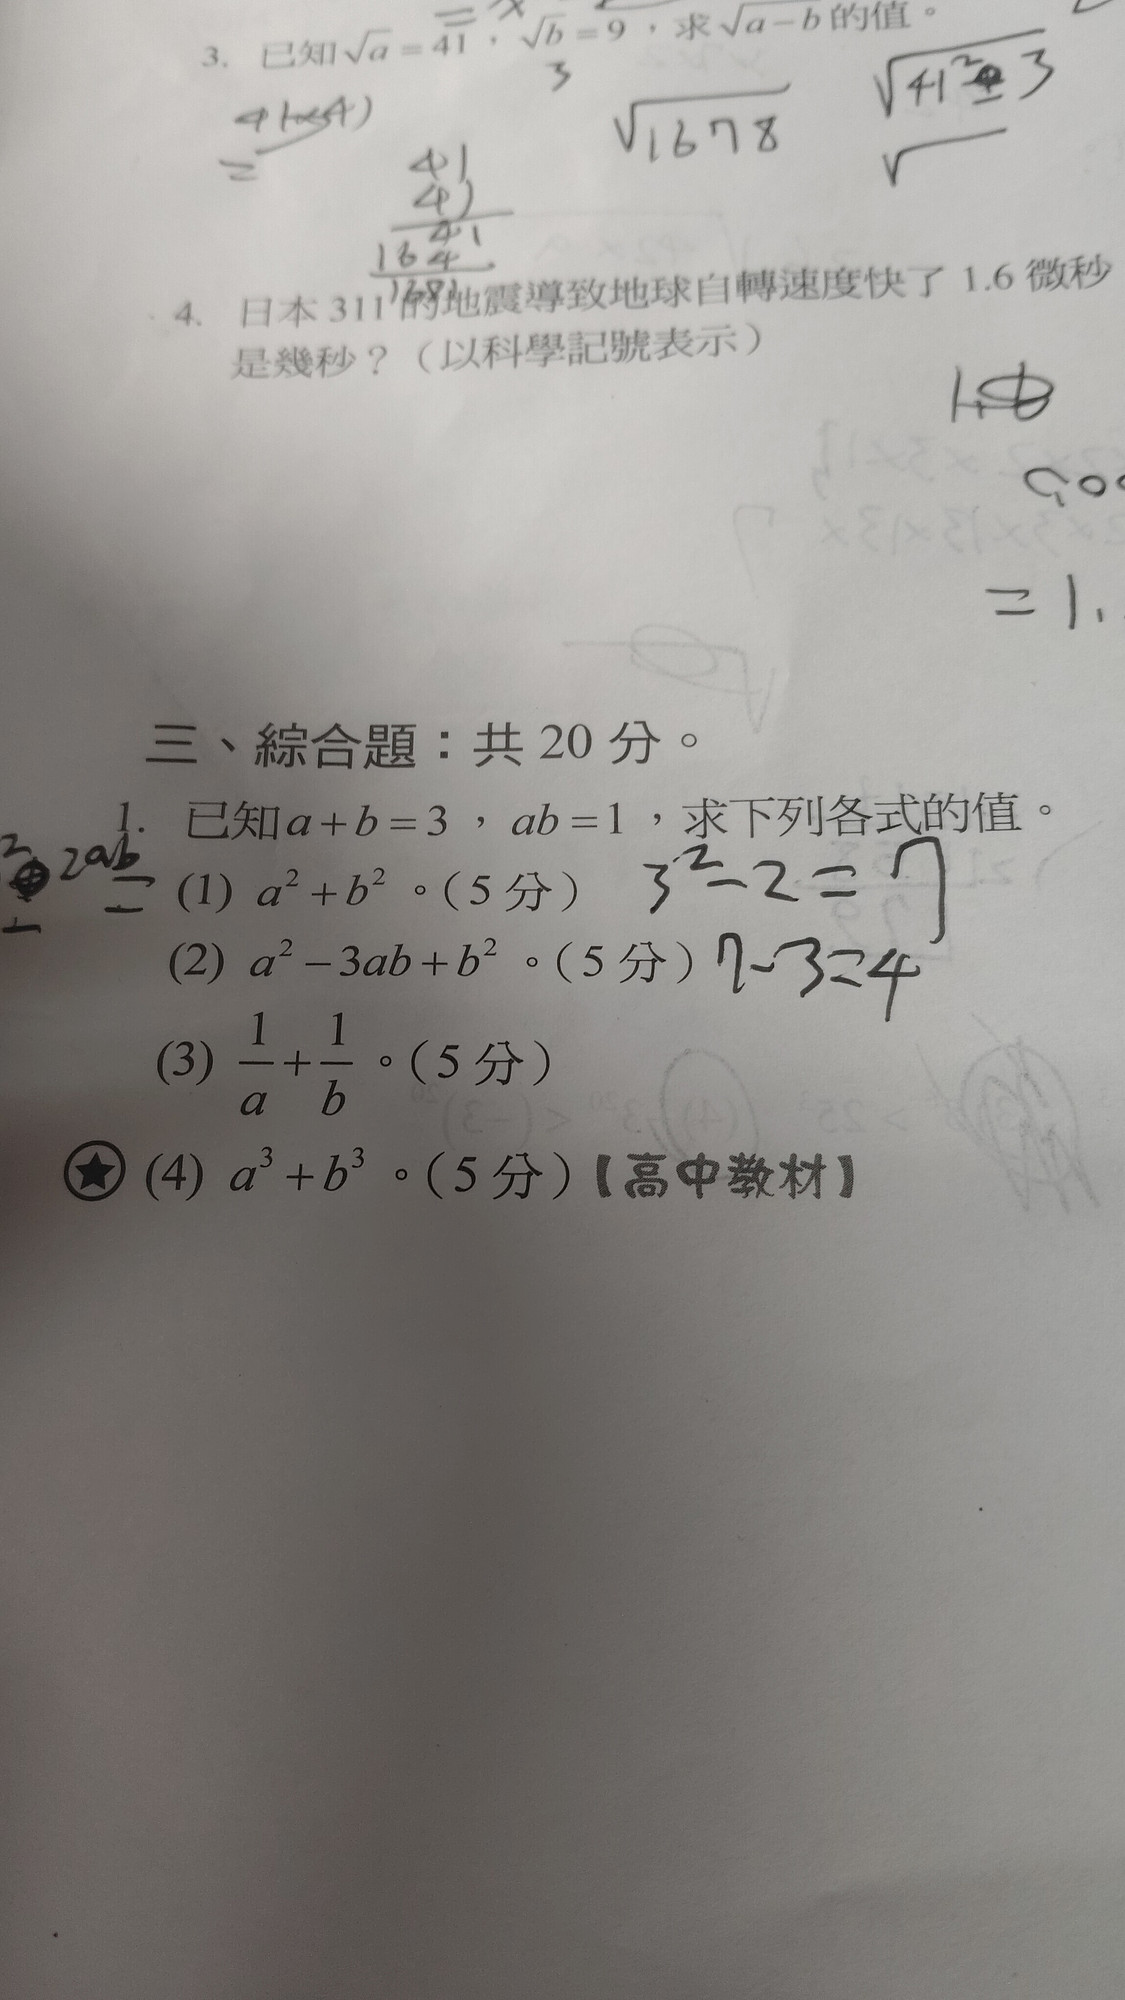 = x
3. 已知√a = 41，√b = 9，求√a−b 的值。
3
√41² - 3
√1678
√
=
41
41
41
164
1681
4. 日本 311 的地震導致地球自轉速度快了 1.6 微秒
是幾秒？（以科學記號表示）
= 1.
三、綜合題：共 20 分。
1. 已知 a + b = 3，ab = 1，求下列各式的值。
2ab =
(1) a² + b²。（5 分） 3² - 2 = 7
(2) a² − 3ab + b²。（5 分） 7 - 3 = 4
(3) 1/a + 1/b。（5 分）
★ (4) a³ + b³。（5 分）【高中教材】